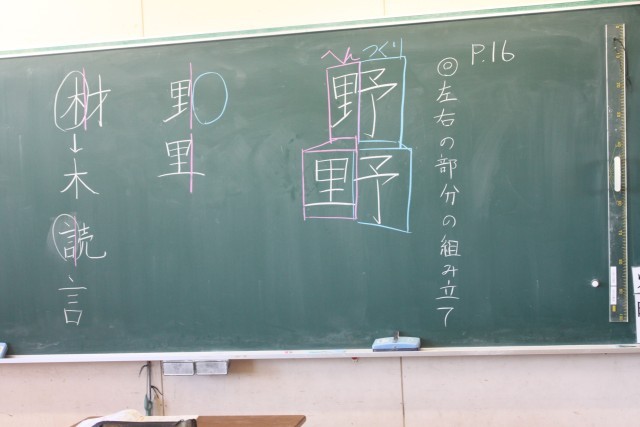 P.16
◎左右の部分の組み立て
へん つくり
野
里予
野
里
材
↓
木
読
言